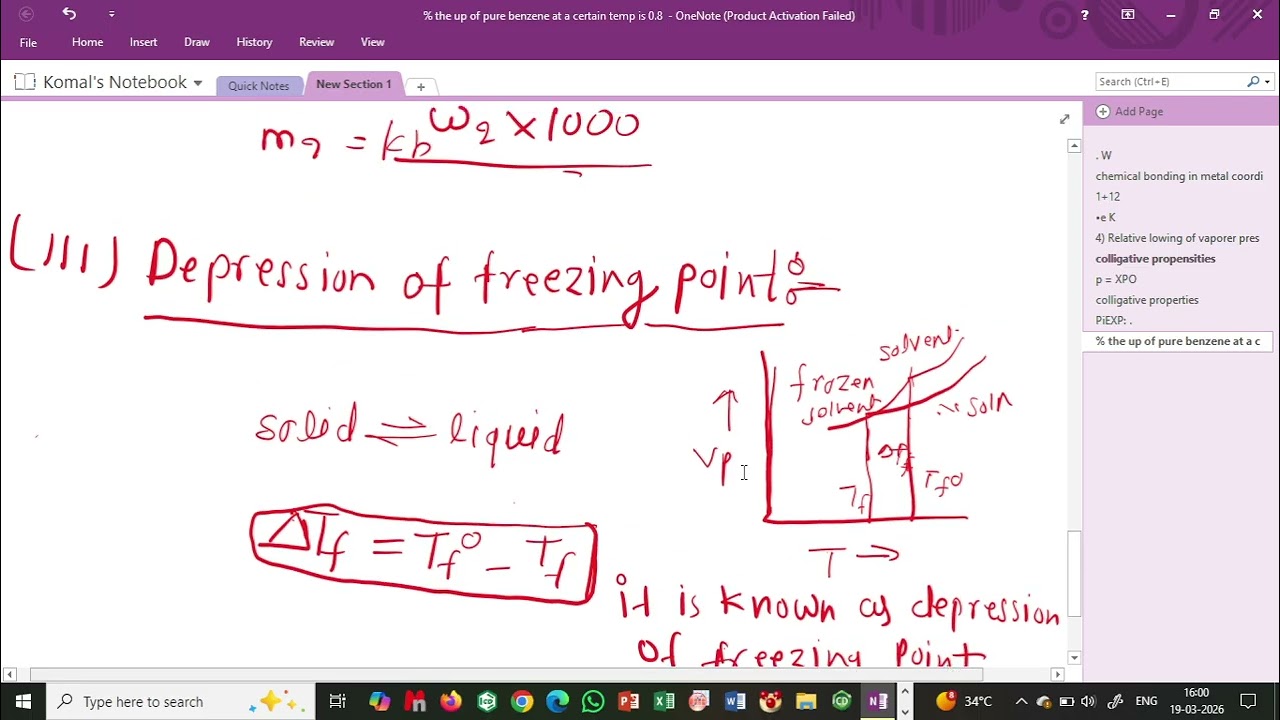 % the up of pure benzene at a certain temp is 0.8 - OneNote (Product Activation Failed)
File Home Insert Draw History Review View
Komal's Notebook
Quick Notes
New Section 1
Search (Ctrl+E)
Add Page
. W
chemical bonding in metal coordi
1+12
•e K
4) Relative lowing of vaporer pres
colligative propensities
p = XPO
colligative properties
PiEXP: .
% the up of pure benzene at a c
m2 = kb w2 × 1000
(III) Depression of freezing point :-
solvent
frozen
solvent
soln
VP
ΔTf
Tf
Tf°
T →
solid ⇌ liquid
ΔTf = Tf° - Tf
it is known as depression
of freezing point
Type here to search
34°C
ENG
16:00
19-03-2026